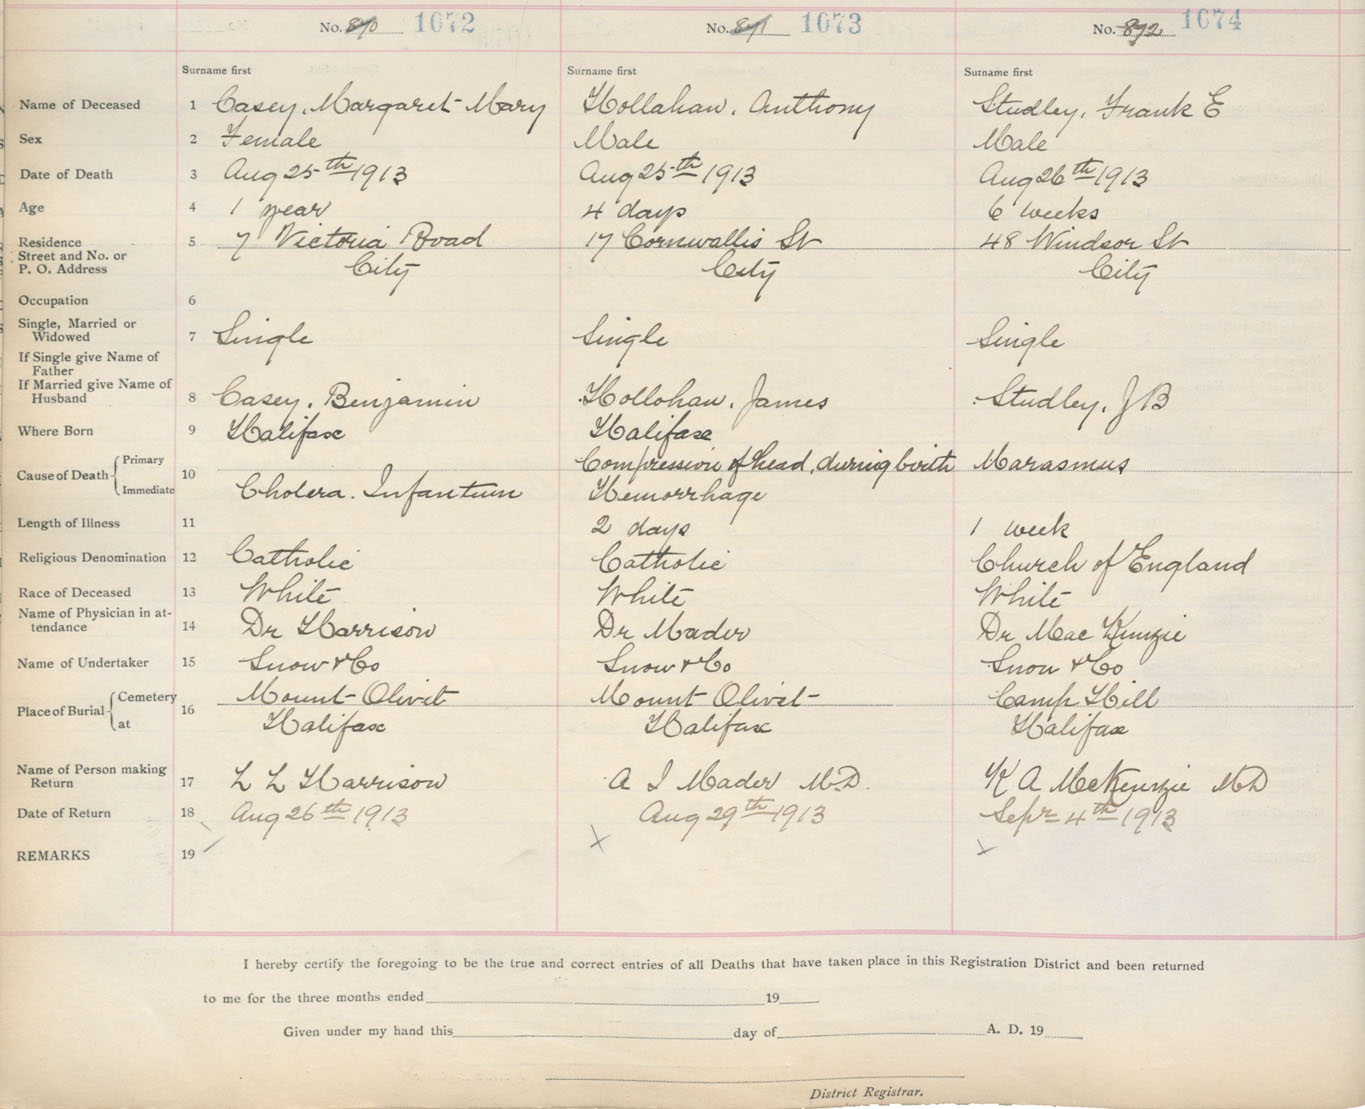 No. 870 1072 No. 871 1073 No. 872 1074
Surname first Surname first Surname first
Name of Deceased 1 Casey, Margaret Mary Hollahan, Anthony Studley, Frank E
Sex 2 Female Male Male
Date of Death 3 Aug 25th 1913 Aug 25th 1913 Aug 26th 1913
Age 4 1 year 4 days 6 weeks
Residence 5 7 Victoria Road 17 Cornwallis St 48 Windsor St
Street and No. or
P. O. Address City City City
Occupation 6
Single, Married or
Widowed 7 Single Single Single
If Single give Name of
Father
If Married give Name of
Husband 8 Casey, Benjamin Hollohan, James Studley, J B
Where Born 9 Halifax Halifax Halifax
Cause of Death Primary 10 Compression of head, during birth Marasmus
Immediate Cholera. Infantum Hemorrhage
Length of Illness 11 2 days 1 week
Religious Denomination 12 Catholic Catholic Church of England
Race of Deceased 13 White White White
Name of Physician in at-
tendance 14 Dr Harrison Dr Mader Dr Mac Kinzie
Name of Undertaker 15 Snow & Co Snow & Co Snow & Co
Place of Burial Cemetery 16 Mount Olivet Mount Olivet Camp Hill
at Halifax Halifax Halifax
Name of Person making
Return 17 L L Harrison A I Mader M.D. K A McKenzie MD
Date of Return 18 Aug 26th 1913 Aug 29th 1913 Sepr 4th 1913
REMARKS 19
I hereby certify the foregoing to be the true and correct entries of all Deaths that have taken place in this Registration District and been returned
to me for the three months ended 19
Given under my hand this day of A. D. 19
District Registrar.